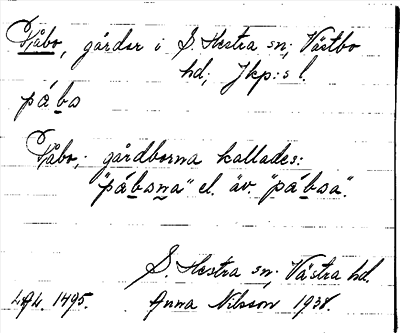 Påbo, gårdar i S. Hestra sn; Västbo
hd; Jkp:s l.
påbo
Påbo; gårdborna kallades:
"påbsna" el. äv. "påbsa".
S. Hestra sn; Västra hd.
1495. Anna Nilsson 1938.